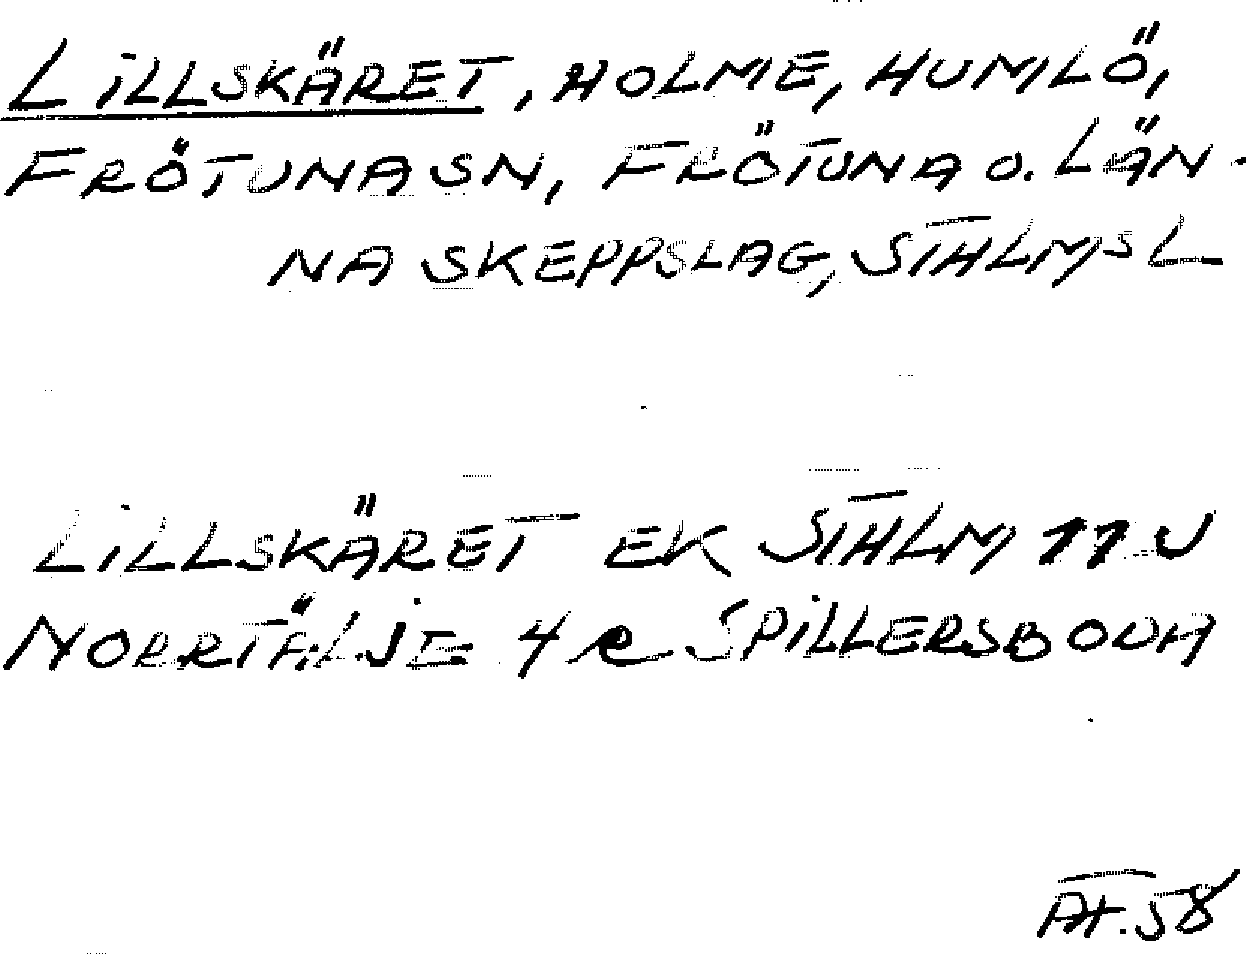 LILLSKÄRET, HOLME, HUMLÖ,
FRÖTUNA SN, FRÖTUNA O. LÄN-
NA SKEPPSLAG, STHLMS L
LILLSKÄRET EK STHLM 11 U
NORRTÄLJE 4 SPILLERSBODA
58